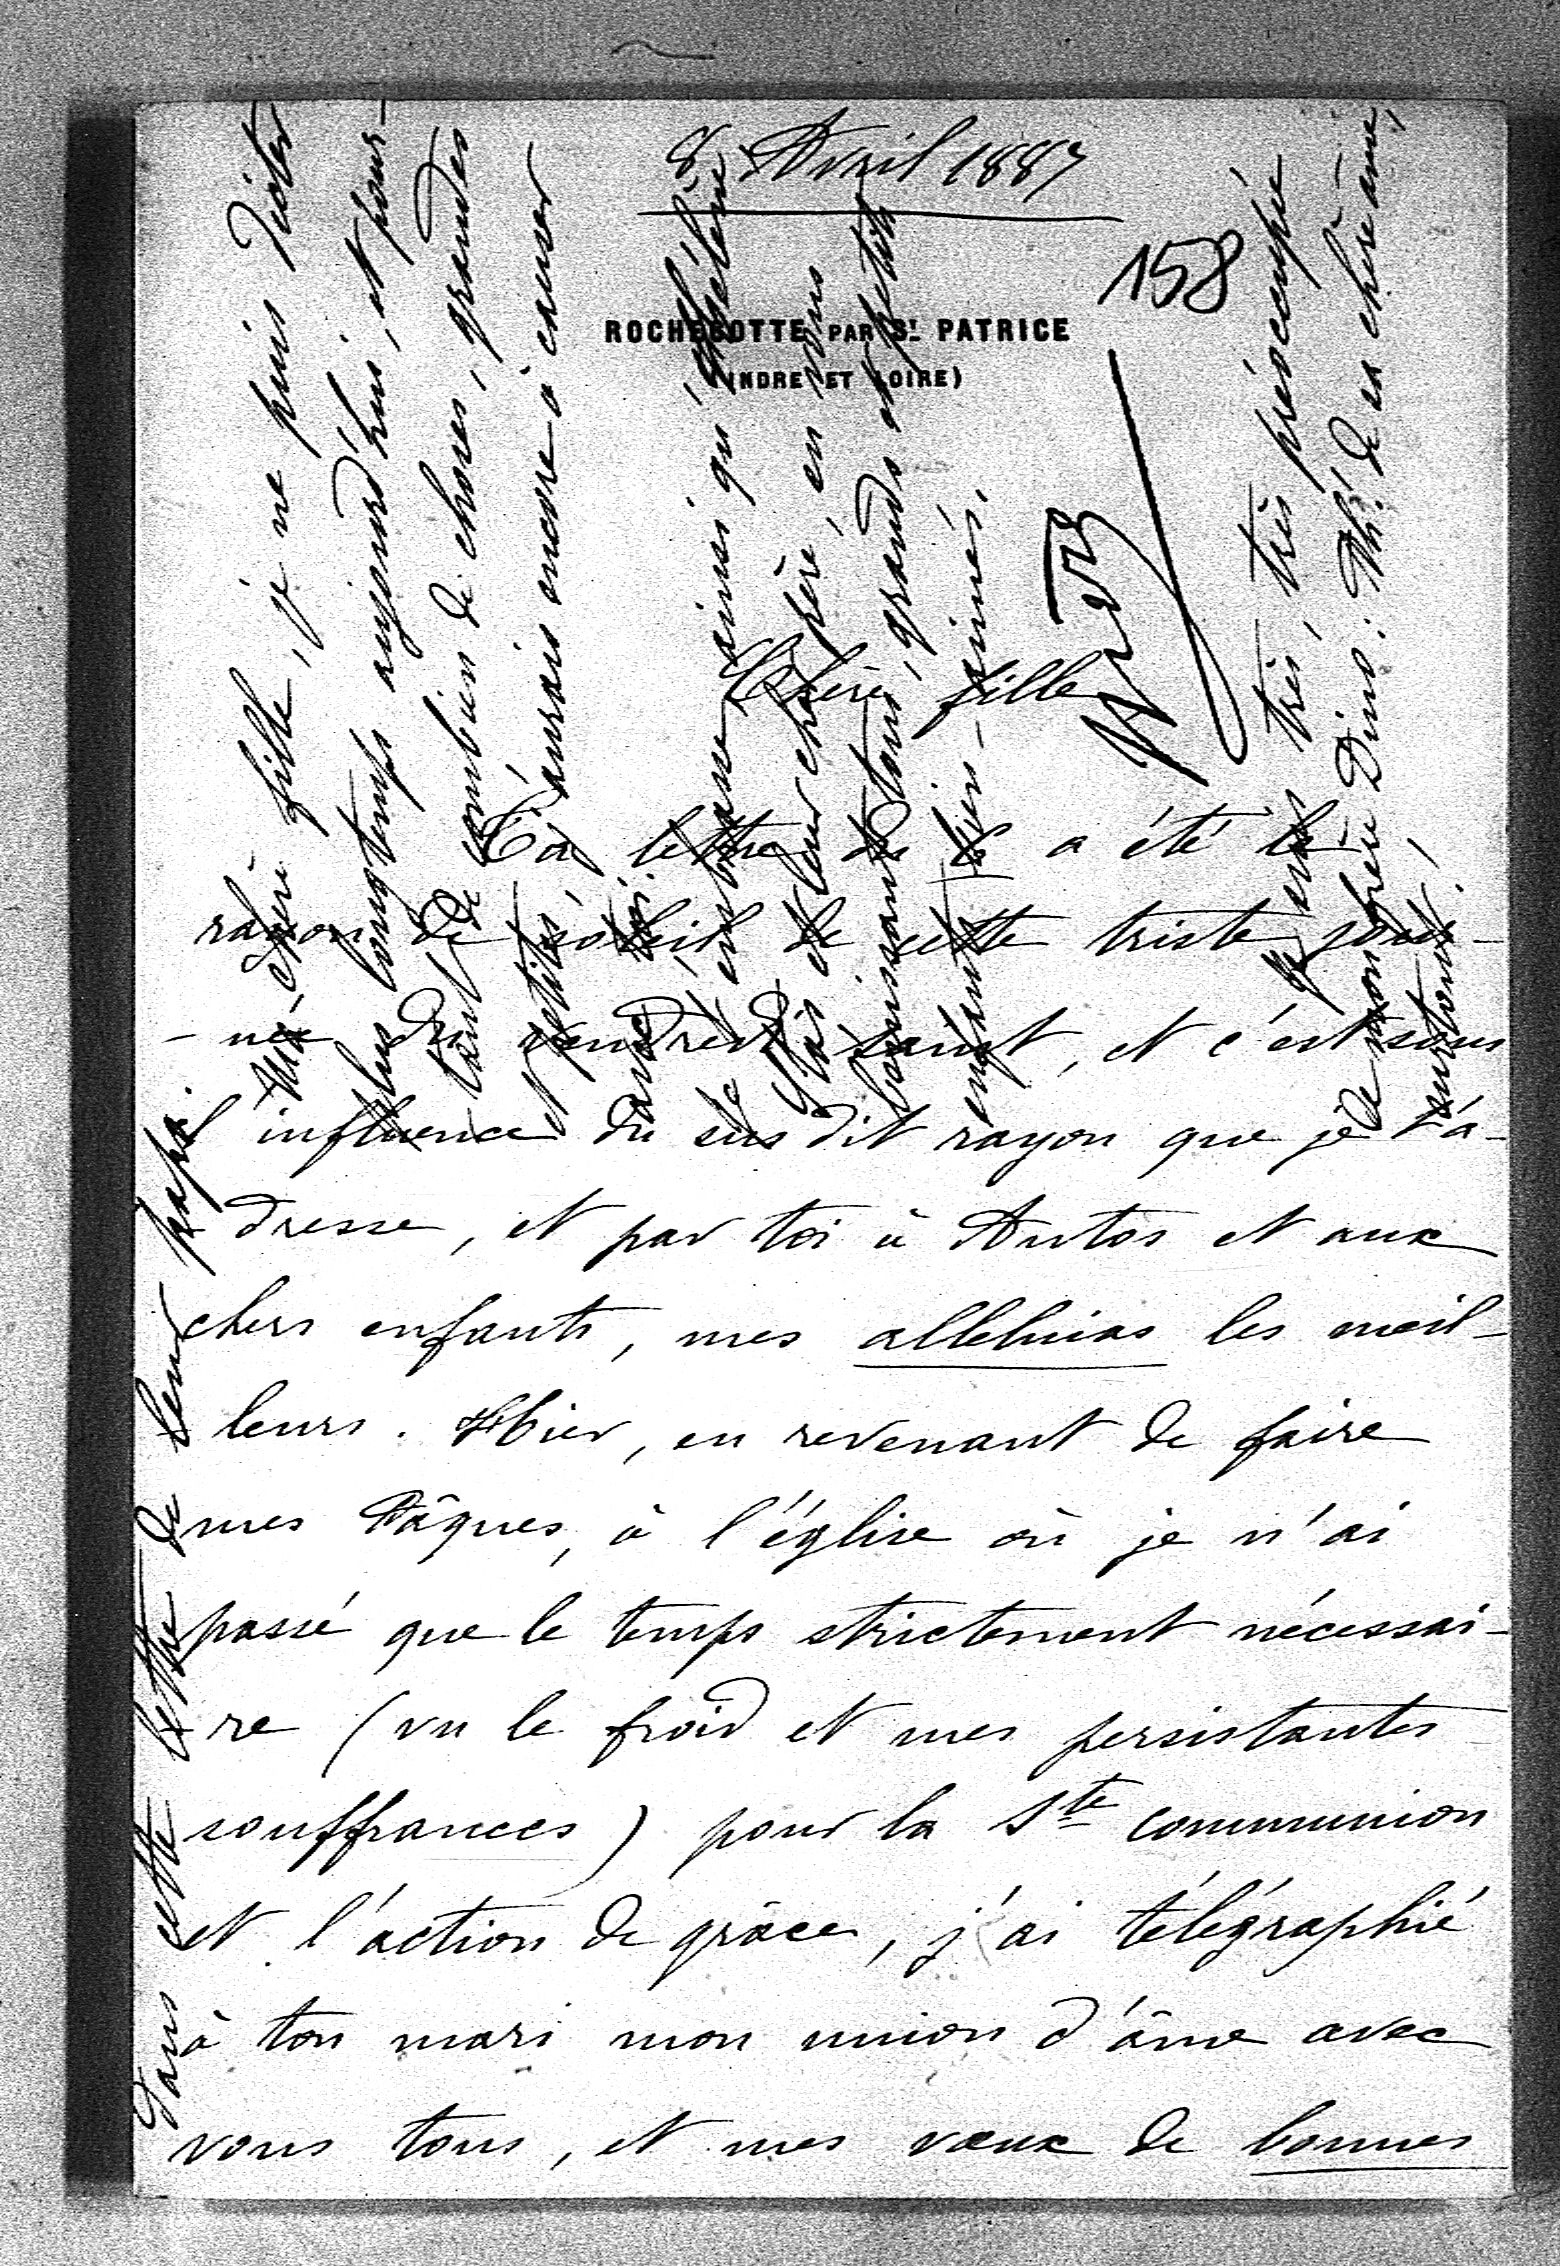 8 Avril 1887
158
ROCHECOTTE PAR St. PATRICE
(INDRE ET LOIRE)
Chère fille
Ta lettre du 6 a été le
rayon de soleil de cette triste jour-
-née du vendredi saint, et c'est sous
l'influence du susdit rayon que je t'a-
dresse, et par toi à Antos et aux
chers enfants, mes alleluias les meil-
leurs. Hier, en revenant de faire
mes Pâques, à l'église où je n'ai
passé que le temps strictement nécessai-
re (vu le froid et mes persistantes
souffrances) pour la Ste communion
et l'action de grâce, j'ai télégraphié
à ton mari mon union d'âme avec
vous tous, et mes vœux de bonnes
Dans cette lettre de leur papa.
Ma chère fille, je ne puis dicter
plus longtemps aujourd'hui, et pour-
tant de combien de choses, grandes
et petites, j'aurais encore à causer
avec toi.
Je t'embrasse ainsi qu'
fais et leur cher père, en vous
bénissant tous, grands et petits
enfants bien-aimés.
Je suis très, très, très préoccupé
de mon frère Dino. Th. de sa chère âme,
surtout!